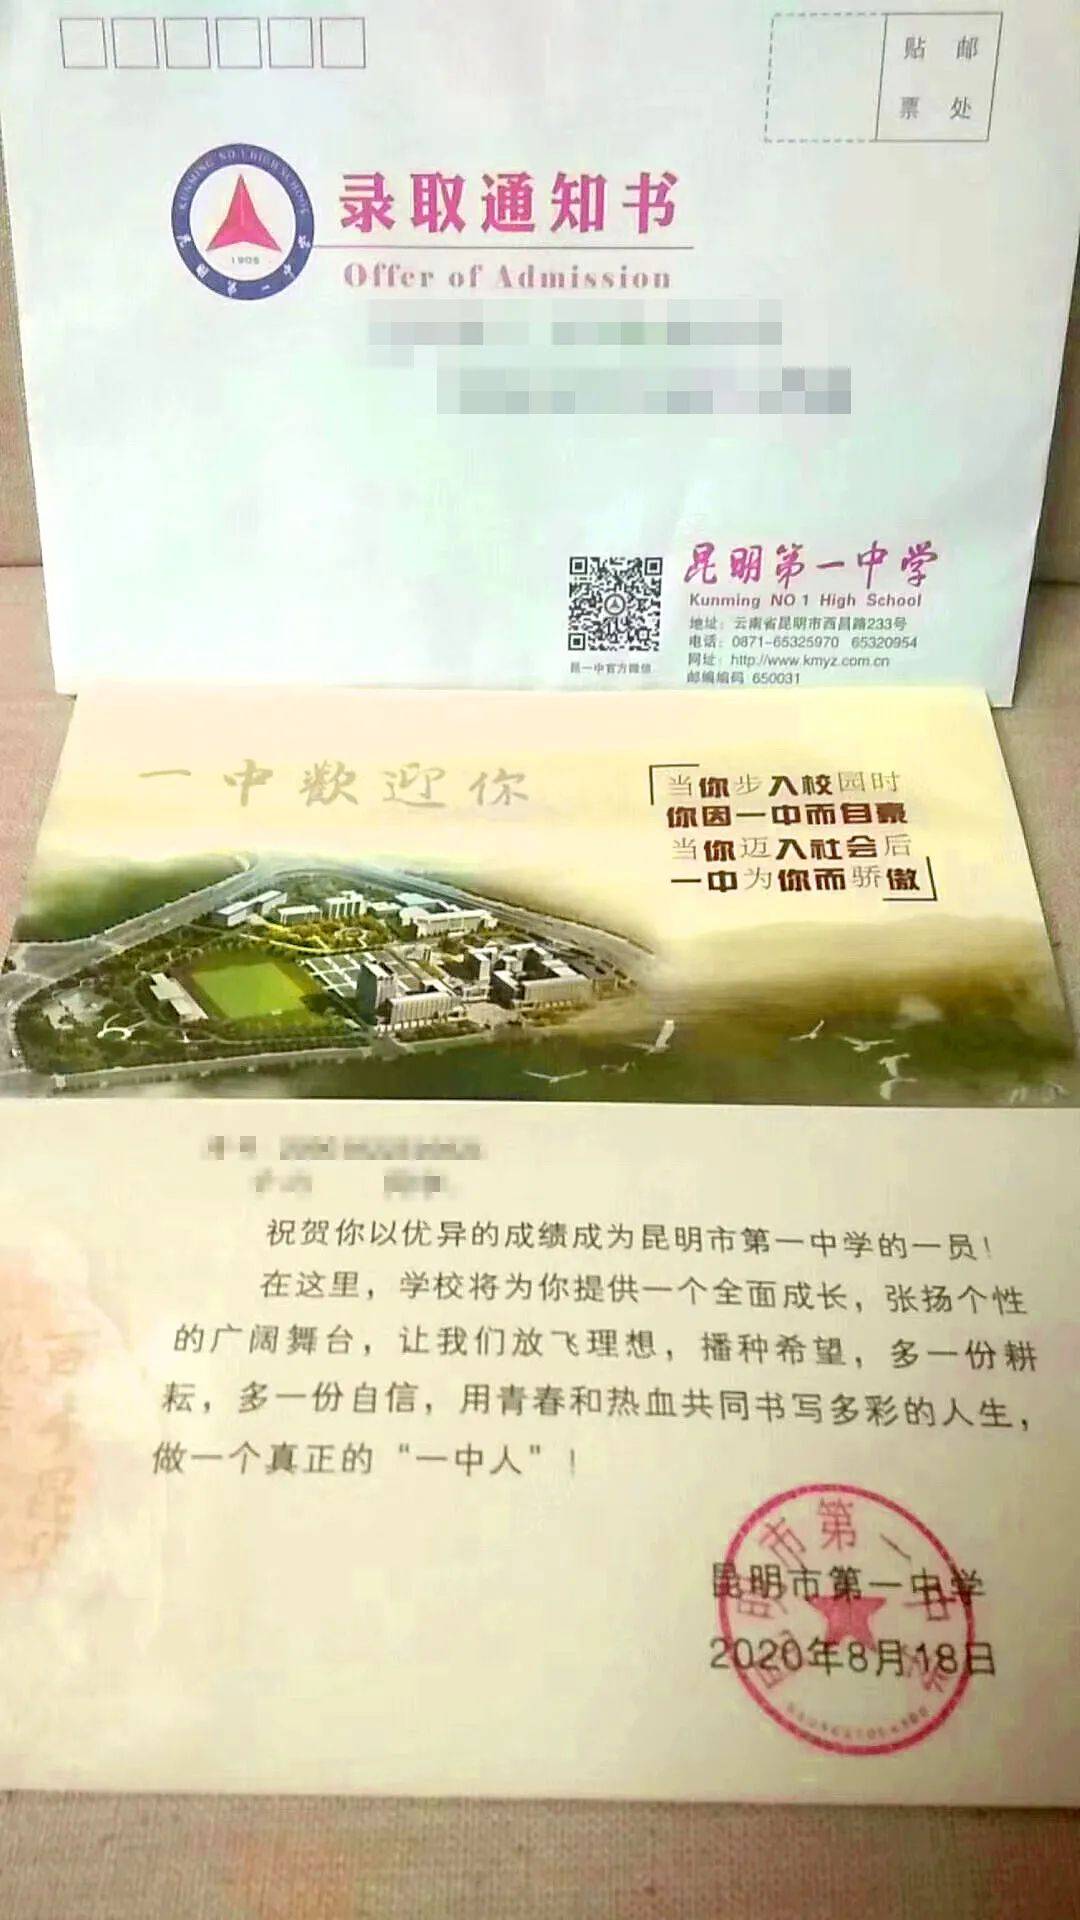 贴 邮
票 处
KUNMING NO.1 HIGH SCHOOL
1905
录取通知书
Offer of Admission
昆明第一中学
Kunming NO 1 High School
地址：云南省昆明市西昌路233号
电话：0871-65325970 65320954
网址：http://www.kmyz.com.cn
邮编编码 650031
昆一中官方微信
一中歡迎你
当你步入校园时
你因一中而自豪
当你迈入社会后
一中为你而骄傲
祝贺你以优异的成绩成为昆明市第一中学的一员！
在这里，学校将为你提供一个全面成长，张扬个性
的广阔舞台，让我们放飞理想，播种希望，多一份耕
耘，多一份自信，用青春和热血共同书写多彩的人生，
做一个真正的“一中人”！
昆明市第一中学
2020年8月18日
昆明市第一中学